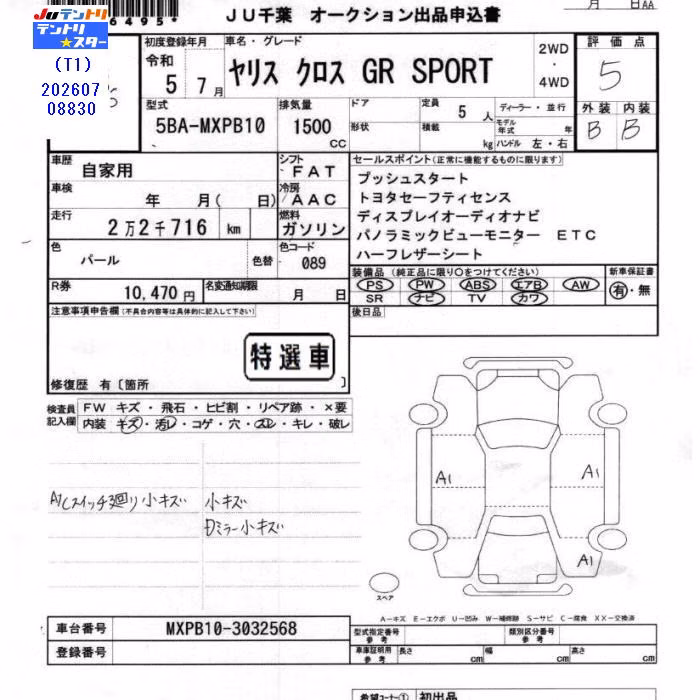 6495
JU千葉 オークション出品申込書
月 日AA
Juテントリ
テントリ★スター
(T1)
202607
08830
初度登録年月
令和
5 7月
車名・グレード
ヤリス クロス GR SPORT
2WD
・
4WD
評価点
5
型式
5BA-MXPB10
排気量
1500
CC
ドア
形状
定員
5 人
積載
kg
ディーラー・並行
モデル年式 年
ハンドル 左・右
外装 内装
B B
車歴
自家用
シフト
FAT
車検
年 月( 日)
冷房
AAC
走行
2万2千716 km
燃料
ガソリン
色
パール
色替
色コード
089
R券
10,470円
名変通知期限
月 日
セールスポイント(正常に機能するものに限ります)
プッシュスタート
トヨタセーフティセンス
ディスプレイオーディオナビ
パノラミックビューモニター ETC
ハーフレザーシート
装備品(純正品に限り○をつけてください)
PS PW ABS エアB AW
SR ナビ TV カワ
新車保証書
有・無
後日品
注意事項申告欄(不具合内容等は具体的に記入して下さい)
特選車
修復歴 有〔箇所 〕
検査員
記入欄
FW キズ・飛石・ヒビ割・リペア跡・×要
内装 キズ・汚レ・コゲ・穴・スレ・キレ・破レ
A/Cスイッチ廻り小キズ
小キズ
Dミラー小キズ
A1
A1
A1
スペア
A-キズ E-エクボ U-凹み W-補修跡 S-サビ C-腐食 XX-交換済
車台番号
MXPB10-3032568
登録番号
型式指定番号
参考
類別区分番号
参考
車庫証明用
参考
長さ cm
幅 cm
高さ cm
希望コーナー① 初出品